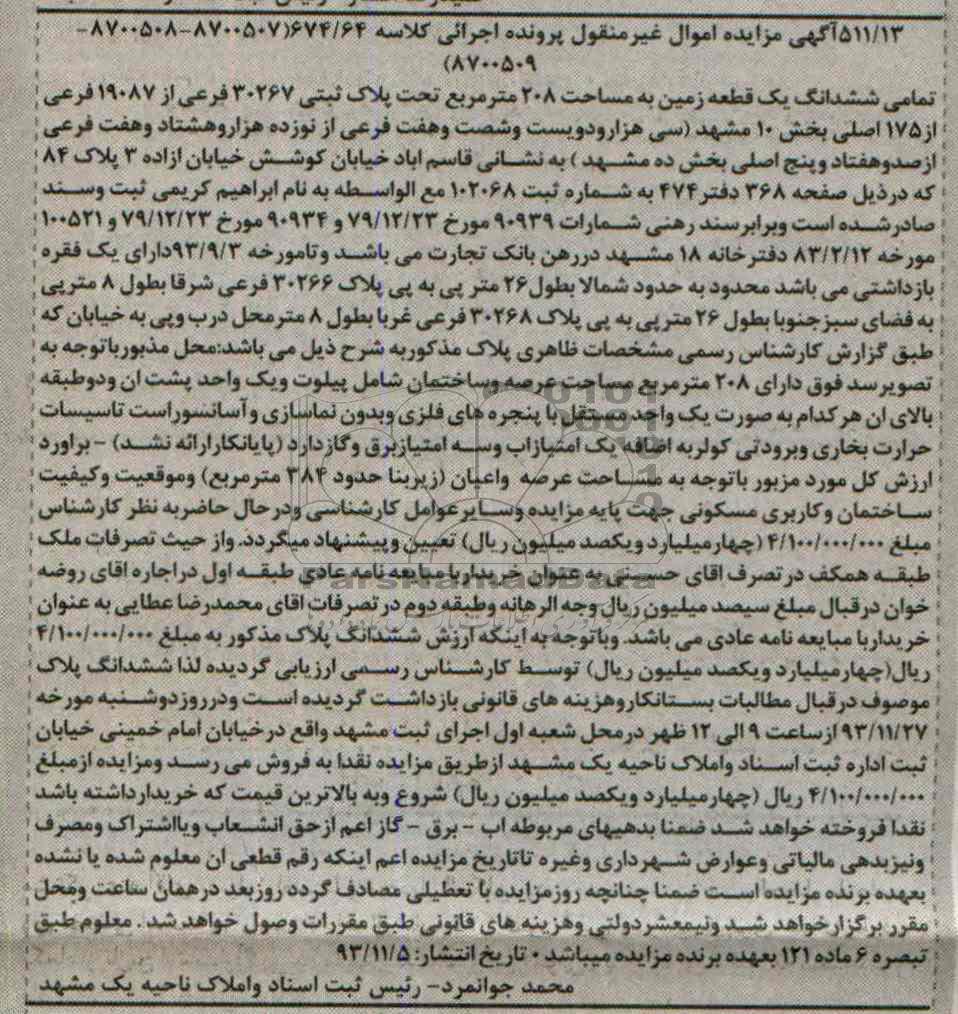 ۵۱۱/۱۳آگهی مزایده اموال غیرمنقول پرونده اجرائی کلاسه ۶۷۴/۶۴(۸۷۰۰۵۰۷-۸۷۰۰۵۰۸-
۸۷۰۰۵۰۹)
تمامی ششدانگ یک قطعه زمین به مساحت ۲۰۸ مترمربع تحت پلاک ثبتی ۳۰۲۶۷ فرعی از ۱۹۰۸۷ فرعی
از۱۷۵ اصلی بخش ۱۰ مشهد (سی هزارودویست وشصت وهفت فرعی از نوزده هزاروهشتاد وهفت فرعی
ازصدوهفتاد وپنج اصلی بخش ده مشهد ) به نشانی قاسم اباد خیابان کوشش خیابان ازاده ۳ پلاک ۸۴
که درذیل صفحه ۳۶۸ دفتر۴۷۴ به شماره ثبت ۱۰۲۰۶۸ مع الواسطه به نام ابراهیم کریمی ثبت وسند
صادرشده است وبرابرسند رهنی شمارات ۹۰۹۳۹ مورخ ۷۹/۱۲/۲۳ و ۹۰۹۳۴ مورخ ۷۹/۱۲/۲۳ و ۱۰۰۵۲۱
مورخه ۸۳/۲/۱۲ دفترخانه ۱۸ مشهد دررهن بانک تجارت می باشد وتامورخه ۹۳/۹/۳دارای یک فقره
بازداشتی می باشد محدود به حدود شمالا بطول۲۶ متر پی به پی پلاک ۳۰۲۶۶ فرعی شرقا بطول ۸ مترپی
به فضای سبزجنوبا بطول ۲۶ مترپی به پی پلاک ۳۰۲۶۸ فرعی غربا بطول ۸ مترمحل درب وپی به خیابان که
طبق گزارش کارشناس رسمی مشخصات ظاهری پلاک مذکوربه شرح ذیل می باشد:محل مذبورباتوجه به
تصویرسد فوق دارای ۲۰۸ مترمربع مساحت عرصه وساختمان شامل پیلوت ویک واحد پشت ان ودوطبقه
بالای ان هرکدام به صورت یک واحد مستقل با پنجره های فلزی وبدون نماسازی وآسانسوراست تاسیسات
حرارت بخاری وبرودتی کولربه اضافه یک امتیازاب وسه امتیازبرق وگازدارد (پایانکارارائه نشد) - براورد
ارزش کل مورد مزبور باتوجه به مساحت عرصه واعیان (زیربنا حدود ۳۸۴ مترمربع) وموقعیت وکیفیت
ساختمان وکاربری مسکونی جهت پایه مزایده وسایرعوامل کارشناسی ودرحال حاضربه نظر کارشناس
مبلغ ۴/۱۰۰/۰۰۰/۰۰۰ (چهارمیلیارد ویکصد میلیون ریال) تعیین وپیشنهاد میگردد. واز حیث تصرفات ملک
طبقه همکف درتصرف اقای حسینی به عنوان خریداربا مبایعه نامه عادی طبقه اول دراجاره اقای روضه
خوان درقبال مبلغ سیصد میلیون ریال وجه الرهانه وطبقه دوم در تصرفات اقای محمدرضا عطایی به عنوان
خریداربا مبایعه نامه عادی می باشد. وباتوجه به اینکه ارزش ششدانگ پلاک مذکور به مبلغ ۴/۱۰۰/۰۰۰/۰۰۰
ریال(چهارمیلیارد ویکصد میلیون ریال) توسط کارشناس رسمی ارزیابی گردیده لذا ششدانگ پلاک
موصوف درقبال مطالبات بستانکاروهزینه های قانونی بازداشت گردیده است ودرروزدوشنبه مورخه
۹۳/۱۱/۲۷ ازساعت ۹ الی ۱۲ ظهر درمحل شعبه اول اجرای ثبت مشهد واقع درخیابان امام خمینی خیابان
ثبت اداره ثبت اسناد واملاک ناحیه یک مشهد ازطریق مزایده نقدا به فروش می رسد ومزایده ازمبلغ
۴/۱۰۰/۰۰۰/۰۰۰ ریال (چهارمیلیارد ویکصد میلیون ریال) شروع وبه بالاترین قیمت که خریدارداشته باشد
نقدا فروخته خواهد شد ضمنا بدهیهای مربوطه اب - برق - گاز اعم ازحق انشعاب ویااشتراک ومصرف
ونیزبدهی مالیاتی وعوارض شهرداری وغیره تاتاریخ مزایده اعم اینکه رقم قطعی ان معلوم شده یا نشده
بعهده برنده مزایده است ضمنا چنانچه روزمزایده با تعطیلی مصادف گردد روزبعد درهمان ساعت ومحل
مقرر برگزارخواهد شد ونیمعشردولتی وهزینه های قانونی طبق مقررات وصول خواهد شد . معلوم طبق
تبصره ۶ ماده ۱۲۱ بعهده برنده مزایده میباشد • تاریخ انتشار: ۹۳/۱۱/۵
محمد جوانمرد- رئیس ثبت اسناد واملاک ناحیه یک مشهد
ParsNamadData